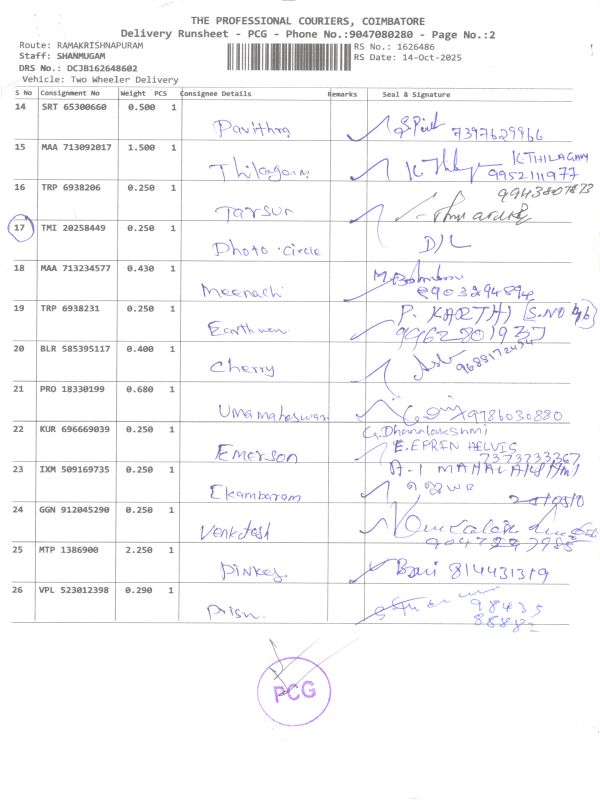 THE PROFESSIONAL COURIERS, COIMBATORE
Delivery Runsheet - PCG - Phone No.:9047080280 - Page No.:2
Route: RAMAKRISHNAPURAM
Staff: SHANMUGAM
DRS No.: DCJB162648602
Vehicle: Two Wheeler Delivery
RS No.: 1626486
RS Date: 14-Oct-2025
S No Consignment No Weight PCS Consignee Details Remarks Seal & Signature
14 SRT 65300660 0.500 1 Pavithra 7397629966
15 MAA 713092017 1.500 1 Thilagam K THILAGAM
9952111977
16 TRP 6938206 0.250 1 Tarsun
17 TMI 20258449 0.250 1 Photo circle D/L
18 MAA 713234577 0.430 1 Meenachi
8903294894
19 TRP 6938231 0.250 1 P. KARTHI (S.NO
9962801937
20 BLR 585395117 0.400 1 Cherry 9688172454
21 PRO 18330199 0.680 1 Umamaheswari 9786030880
G. Dhanalakshmi
22 KUR 696669039 0.250 1 Emerson E. EFRIN HELVIS
7373733367
23 IXM 509169735 0.250 1 Ekambaram A-1 MAHALAKSHMI
24 GGN 912045290 0.250 1 Venktesh
25 MTP 1386900 2.250 1 Pinkey 814431319
26 VPL 523012398 0.290 1 Prism. 98435
PCG